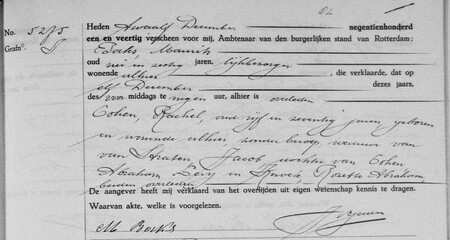 52
No. 5275
Grafno.
Heden twaalf December negentienhonderd
een en veertig verscheen voor mij, Ambtenaar van den burgerlijken stand van Rotterdam:
Boeks, Maurits
oud en zestig jaren, lijkbezorger
wonende alhier, die verklaarde, dat op
elf December dezes jaars,
des voor middags te negen uur, alhier is overleden
Cohen, Rachel, oud vijf en zeventig jaren, geboren
en wonende alhier zonder beroep, weduwe van
van Straten, Jacob, dochter van Cohen
Abraham Levy en Rosette Abraham,
beiden overleden
De aangever heeft mij verklaard van het overlijden uit eigen wetenschap kennis te dragen.
Waarvan akte, welke is voorgelezen.
M Boeks